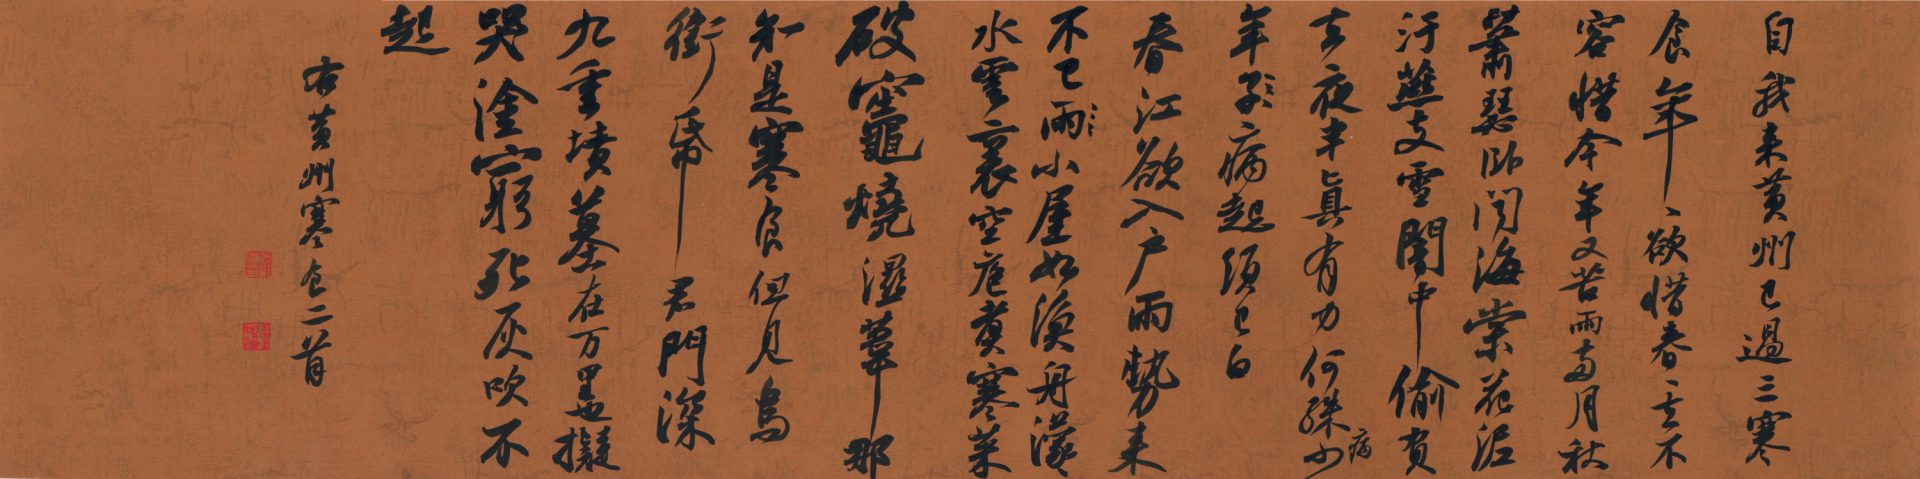 自我来黄州已過三寒
食年〻欲惜春〻去不
容惜今年又苦雨兩月秋
蕭瑟卧聞海棠花泥
汙燕支雪闇中偷負
去夜半真有力何殊病少
年子病起須已白
春江欲入户雨勢来
不已雨小屋如漁舟濛〻
水雲裏空庖煑寒菜
破竈燒濕葦那
知是寒食但見烏
銜帋君門深
九重墳墓在万里也擬
哭塗窮死灰吹不
起
右黄州寒食二首